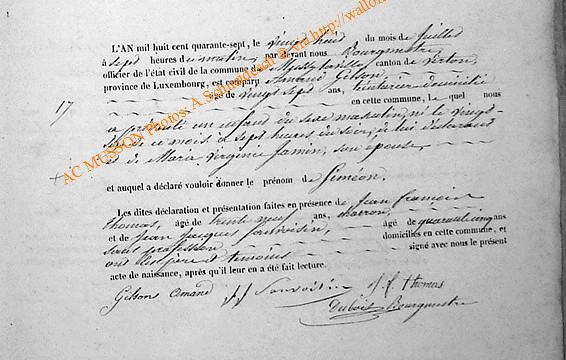 L'AN mil huit cent quarante-sept, le vingt huit du mois de juillet
à sept heures du matin, par devant nous Bourgmestre,
officier de l'état civil de la commune de canton de Virton,
province de Luxembourg, est comparu Amand Gilson,
âgé de vingt sept ans, teinturier domicilié
en cette commune, le quel nous
17
a présenté un enfant du sexe masculin, né le vingt-
de ce mois à sept heures du soir, de lui déclarant
et de Marie Virginie Jamin, son épouse,
et auquel a déclaré vouloir donner le prénom de Siméon.
Les dites déclaration et présentation faites en présence de Jean françois
thomas, âgé de trente neuf ans, charron,
et de Jean Jacques âgé de quarante cinq ans
sans profession, domiciliés en cette commune, et
ont les père et témoins signé avec nous le présent
acte de naissance, après qu'il leur en a été fait lecture.
Gilson Amand J. f. thomas
Dubois Bourgmestre
AC MUSSON Photos: A.